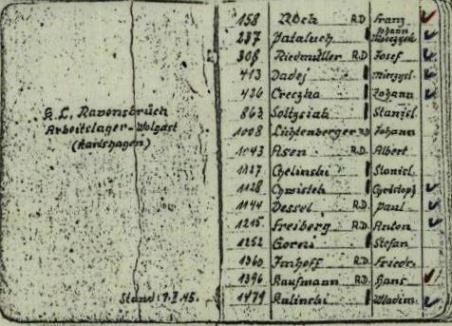 K. L. Ravensbrück
Arbeitslager-Wolgast
(Karlshagen)
158 R.D. Franz
237 Pataluch
308 Riedmüller R.D. Josef
413 Dadej
426 Creczka Johann
863 Soltysiak Stanisl.
1008 Lichtenberger R.D. Johann
1043 Asen R.D. Albert
1127 Chelinski Stanisl.
1128 Chwistek
1144 Dessel R.D. Paul
1215 Freiberg R.D. Anton
1252 Stefan
1340 Imhoff R.D. Friedr.
1396 Kaufmann R.D. Hans
1479 Kulinski Wladim.
Stand: 45.